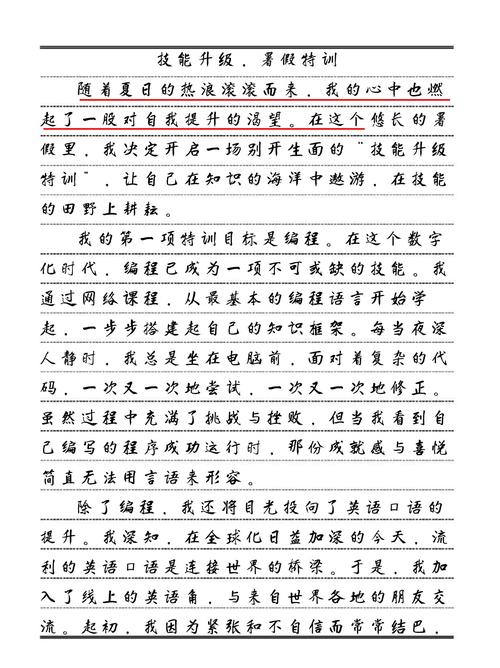 技能升级，暑假特训
随着夏日的热浪滚滚而来，我的心中也燃
起了一股对自我提升的渴望。在这个悠长的暑
假里，我决定开启一场别开生面的“技能升级
特训”，让自己在知识的海洋中遨游，在技能
的田野上耕耘。
我的第一项特训目标是编程。在这个数字
化时代，编程已成为一项不可或缺的技能。我
通过网络课程，从最基本的编程语言开始学
起，一步步搭建起自己的知识框架。每当夜深
人静时，我总是坐在电脑前，面对着复杂的代
码，一次又一次地尝试，一次又一次地修正。
虽然过程中充满了挑战与挫败，但当我看到自
己编写的程序成功运行时，那份成就感与喜悦
简直无法用言语来形容。
除了编程，我还将目光投向了英语口语的
提升。我深知，在全球化日益加深的今天，流
利的英语口语是连接世界的桥梁。于是，我加
入了线上的英语角，与来自世界各地的朋友交
流。起初，我因为紧张和不自信而常常结巴，